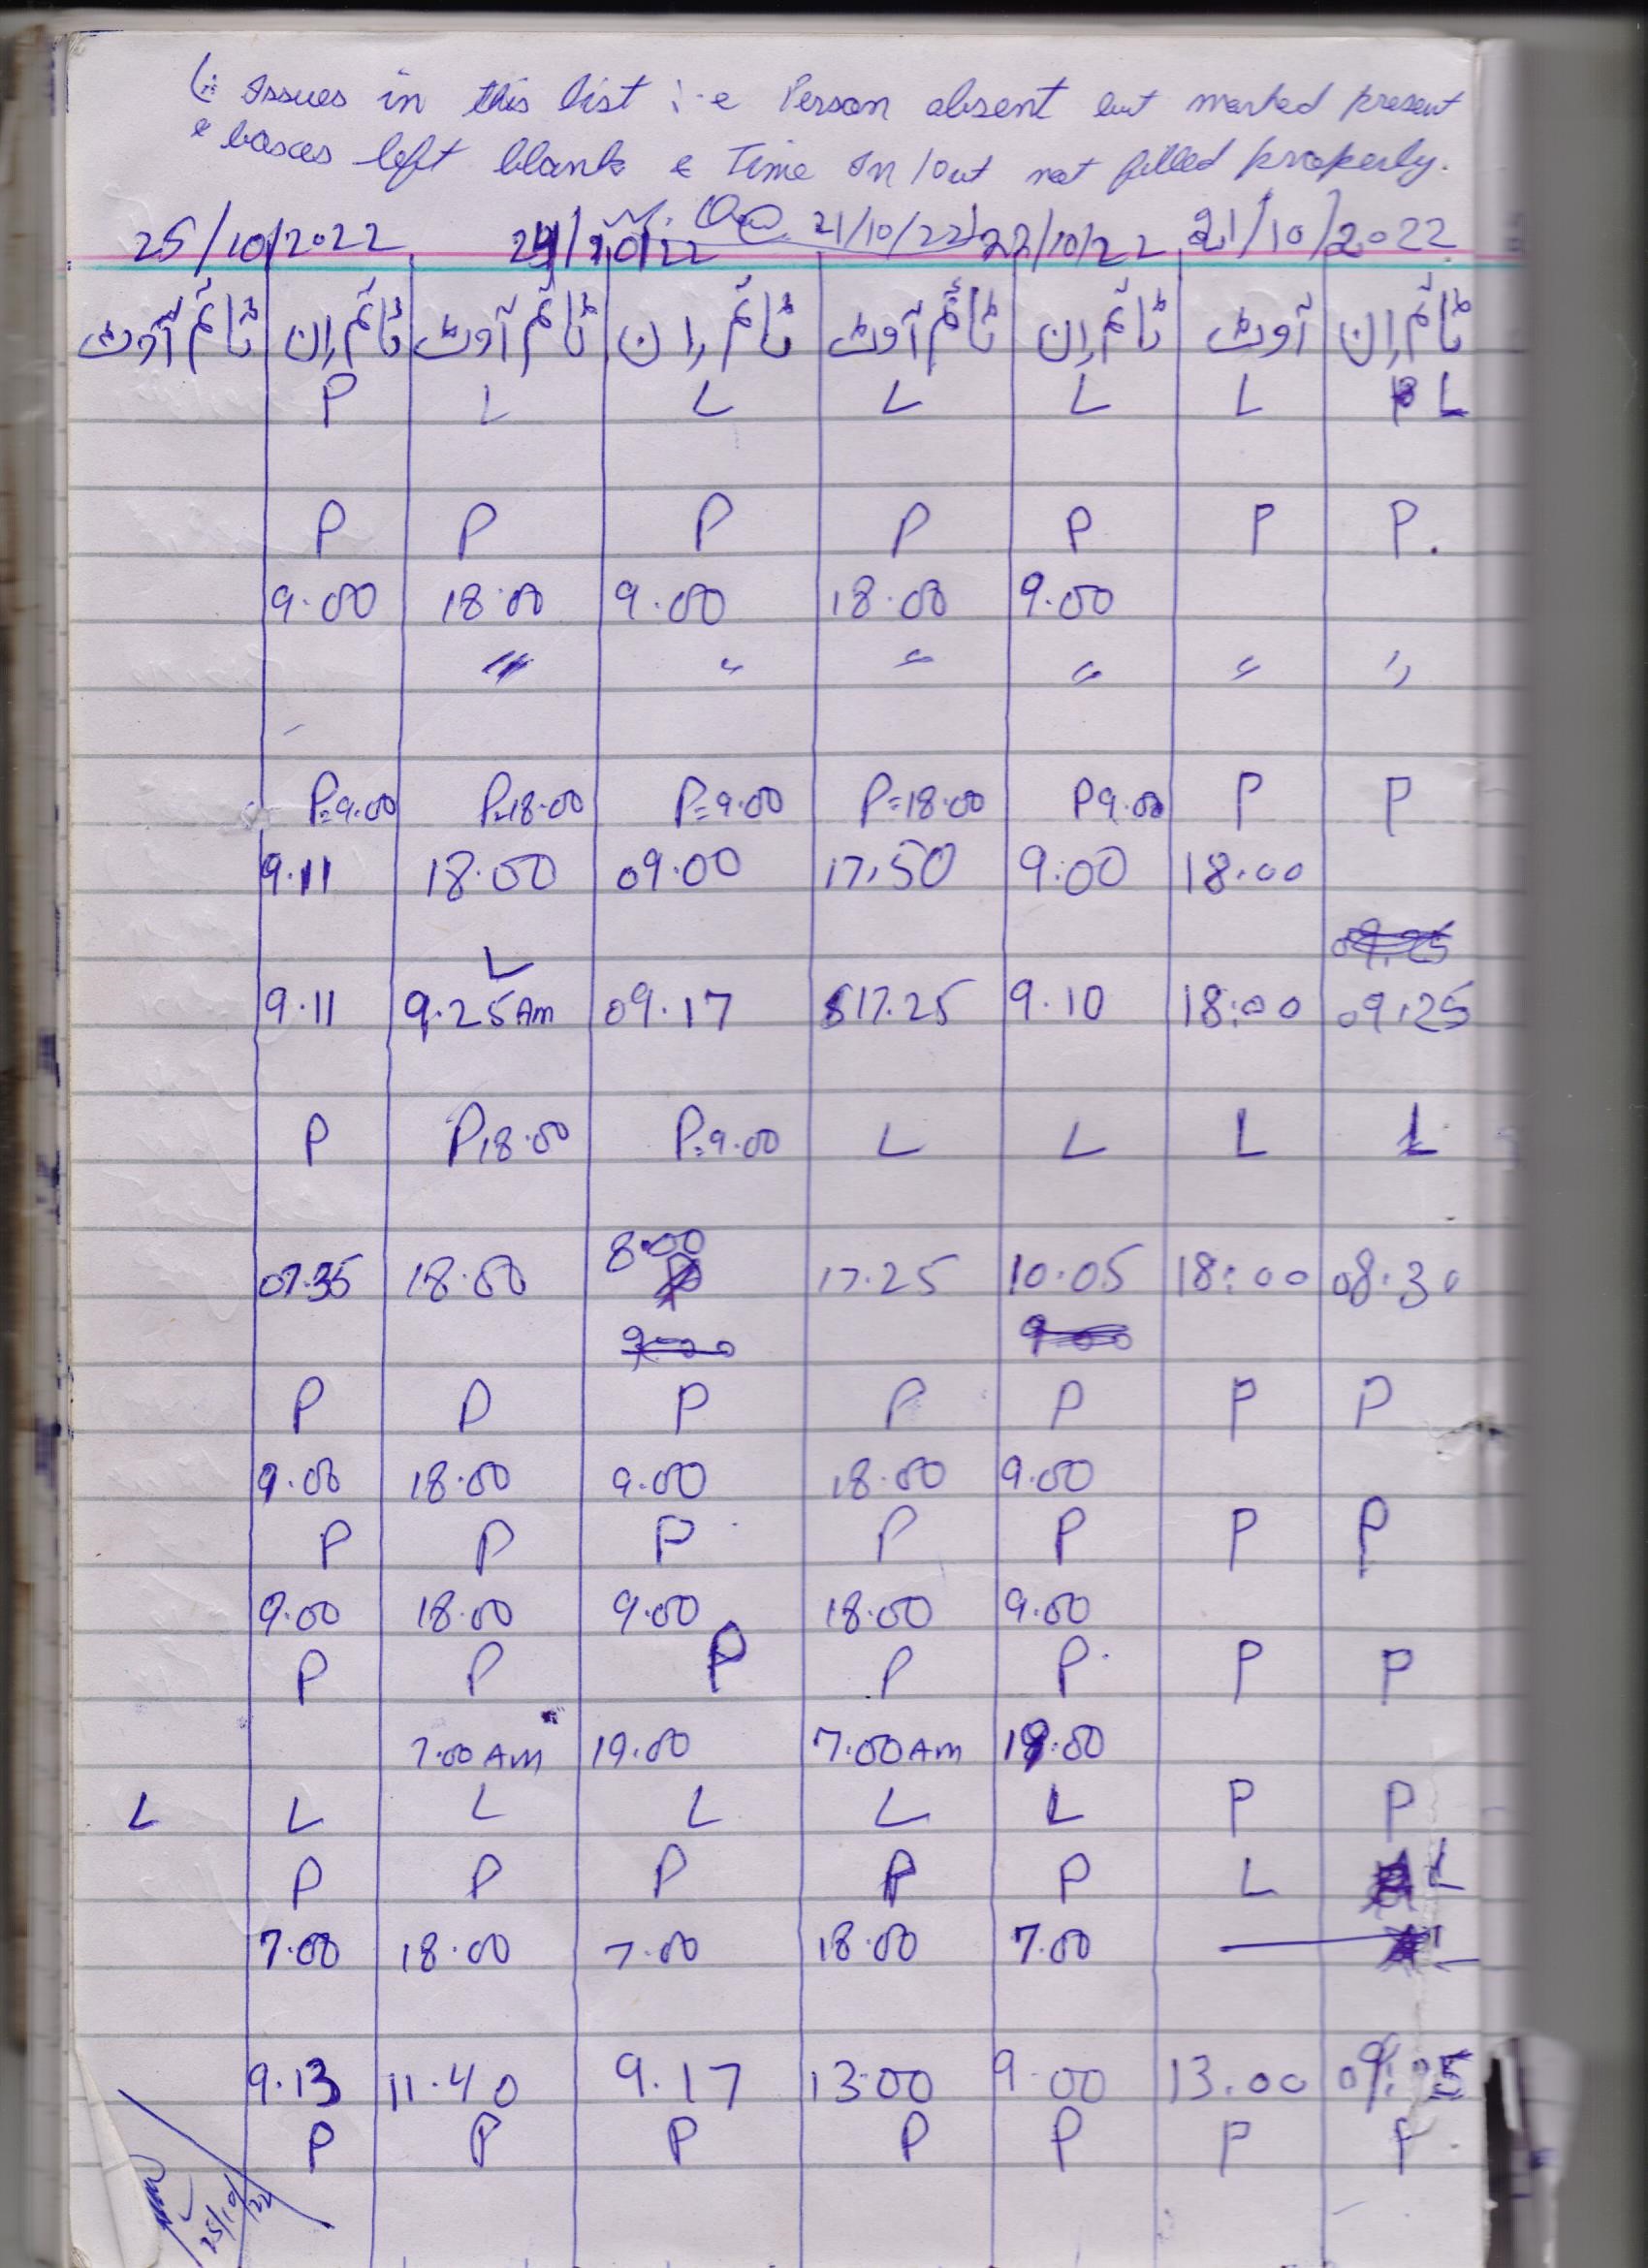 Issues in this list i.e Person absent but marked present
& boxes left blank & Time In/Out not filled properly.
25/10/2022 24/10/22 21/10/22 22/10/22 21/10/2022
ٹائم ان آوٹ ٹائم ان ٹائم آوٹ ٹائم ان ٹائم آوٹ ٹائم ان ٹائم آوٹ
P L L L L L L
P P P P P P P.
9.00 18.00 9.00 18.00 9.00
" " " " " "
P=9.00 P=18.00 P=9.00 P=18.00 P9.00 P P
9.11 18.00 09.00 17.50 9:00 18:00
L 09.25
9.11 9.25Am 09.17 17.25 9.10 18:00 09:25
P P18.00 P=9.00 L L L L
8.00
07.35 18.00 P 17.25 10.05 18:00 08:30
9.00 9.00
P P P P P P P
9.00 18.00 9.00 18.00 9.00
P P P P P P P
9.00 18.00 9.00 18.00 9.00
P P P P P P P
7.00 Am 19.00 7.00 Am 19.00
L L L L L L P P
P P P P P L L
7.00 18.00 7.00 18.00 7.00 L
9.13 11.40 9.17 13.00 9.00 13.00
P P P P P P P
25/10/22